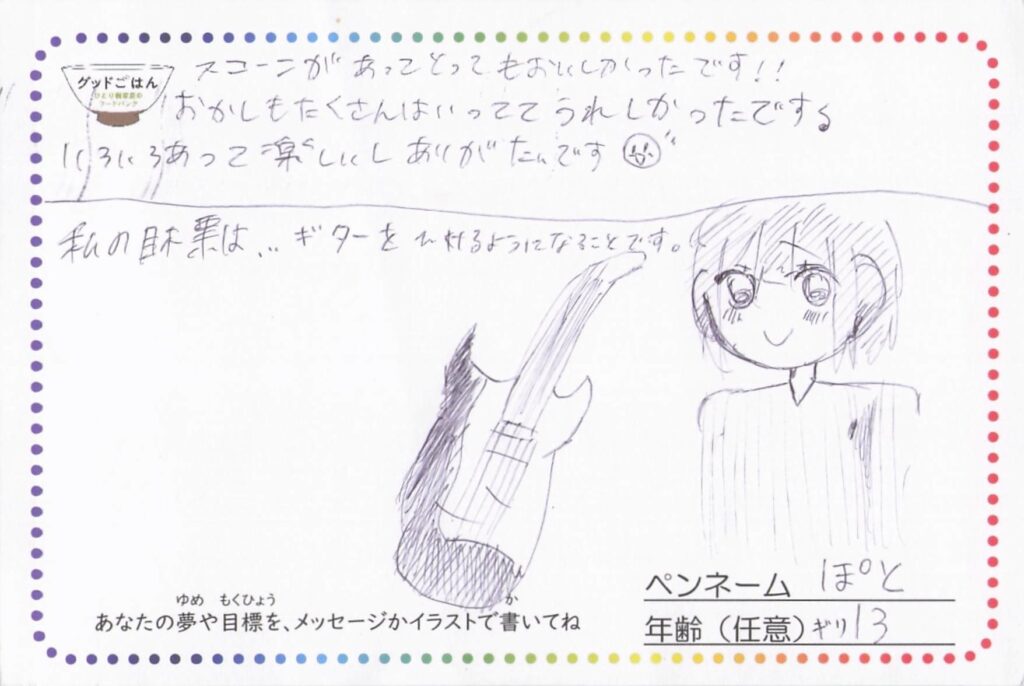 スコーンがあってとってもおいしかったです!!
グッドごはん
ひとり親家庭の
フードバンク
おかしもたくさんはいっててうれしかったでする
いろいろあって楽しいしありがたいです
私の目標は...ギターをひけるようになることです。
ゆめ もくひょう か
あなたの夢や目標を、メッセージかイラストで書いてね
ペンネーム ぽと
年齢(任意)ギリ13